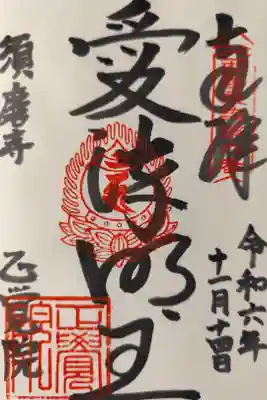 奉拝
令和六年
十一月十四日
愛染明王
須磨寺
正覚院